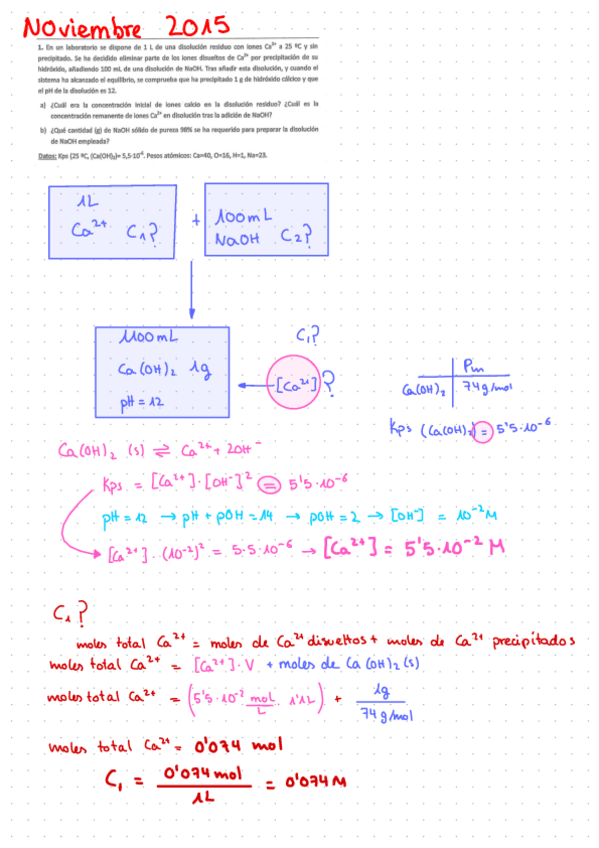 Noviembre 2015
1. En un laboratorio se dispone de 1 L de una disolución residuo con iones Ca²⁺ a 25 ºC y sin
precipitado. Se ha decidido eliminar parte de los iones disueltos de Ca²⁺ por precipitación de su
hidróxido, añadiendo 100 mL de una disolución de NaOH. Tras añadir esta disolución, y cuando el
sistema ha alcanzado el equilibrio, se comprueba que ha precipitado 1 g de hidróxido cálcico y que
el pH de la disolución es 12.
a) ¿Cuál era la concentración inicial de iones calcio en la disolución residuo? ¿Cuál es la
concentración remanente de iones Ca²⁺ en disolución tras la adición de NaOH?
b) ¿Qué cantidad (g) de NaOH sólido de pureza 98% se ha requerido para preparar la disolución
de NaOH empleada?
Datos: Kps (25 ºC, (Ca(OH)₂)= 5,5·10⁻⁶. Pesos atómicos: Ca=40, O=16, H=1, Na=23.
1L
Ca²⁺ C₁?
+
100mL
NaOH C₂?
1100mL
Ca(OH)₂ 1g
pH = 12
C₁?
[Ca²⁺]?
Pm
Ca(OH)₂ 74g/mol
Kps (Ca(OH)₂) = 5'5·10⁻⁶
Ca(OH)₂ (s) ⇌ Ca²⁺ + 2OH⁻
Kps = [Ca²⁺]·[OH⁻]² = 5'5·10⁻⁶
pH = 12 → pH + pOH = 14 → pOH = 2 → [OH⁻] = 10⁻² M
[Ca²⁺]·(10⁻²)² = 5·5·10⁻⁶ → [Ca²⁺] = 5'5·10⁻² M
C₁?
moles total Ca²⁺ = moles de Ca²⁺ disueltos + moles de Ca²⁺ precipitados
moles total Ca²⁺ = [Ca²⁺]·V + moles de Ca(OH)₂(s)
moles total Ca²⁺ = (5'5·10⁻² mol/L · 1'1L) + 1g / 74g/mol
moles total Ca²⁺ = 0'074 mol
C₁ = 0'074 mol / 1L = 0'074 M